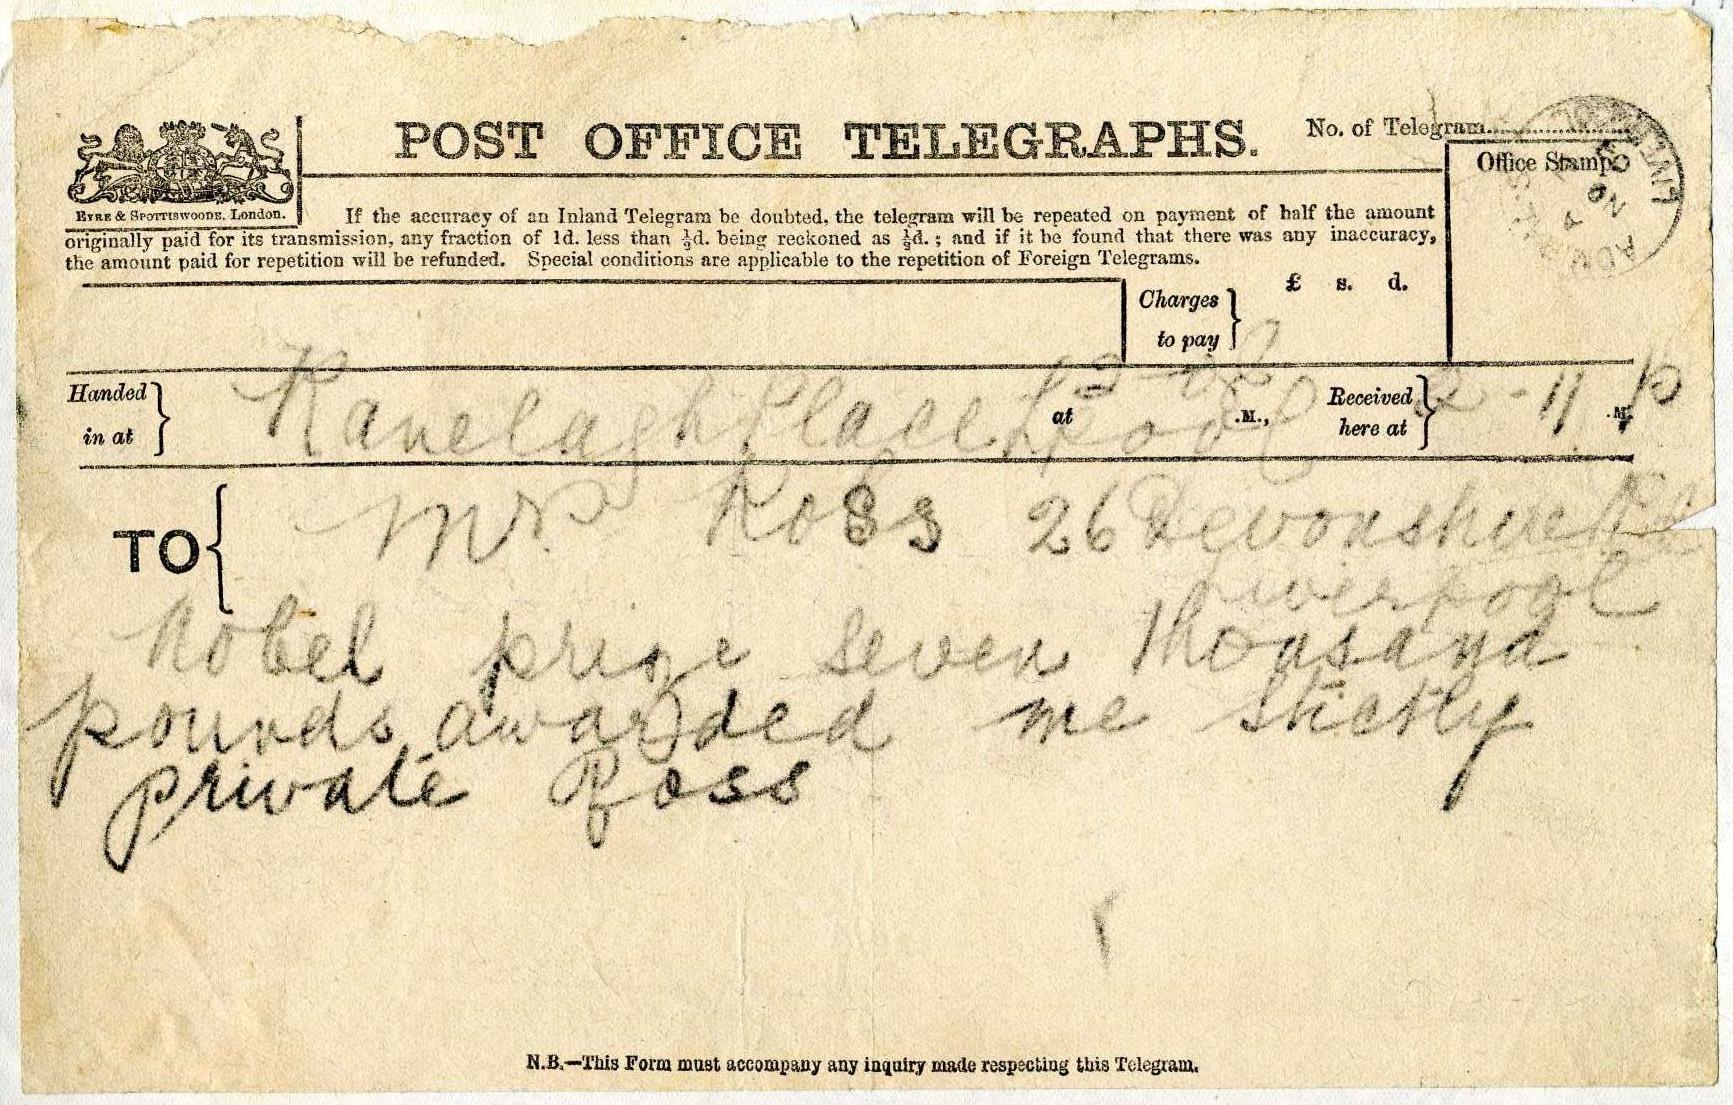 POST OFFICE TELEGRAPHS.
No. of Telegram
Office Stamp.
EYRE & SPOTTISWOODE, London.
If the accuracy of an Inland Telegram be doubted, the telegram will be repeated on payment of half the amount
originally paid for its transmission, any fraction of 1d. less than ½d. being reckoned as ½d. ; and if it be found that there was any inaccuracy,
the amount paid for repetition will be refunded. Special conditions are applicable to the repetition of Foreign Telegrams.
Charges to pay } £ s. d.
Handed in at } Ranelagh Place Lpool at .M., Received here at } 2-11 p .M.
TO { Mrs Ross 26 Devonshire Rd
Liverpool
Nobel prize seven thousand
pounds awarded me stictly
private Ross
N.B.—This Form must accompany any inquiry made respecting this Telegram.